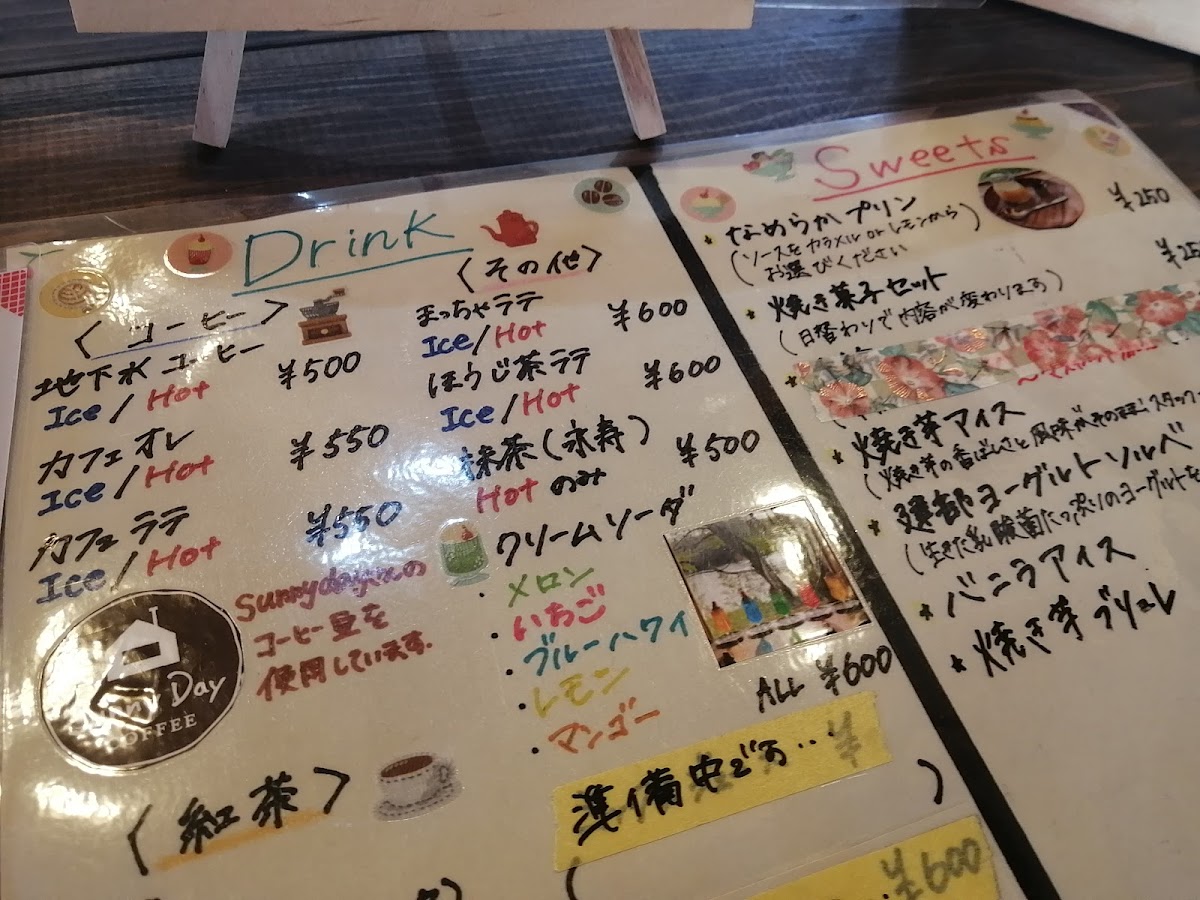 Drink
〈コーヒー〉
地下水コーヒー ¥500
Ice / Hot
カフェオレ ¥550
Ice / Hot
カフェラテ ¥550
Ice / Hot
sunnydayさんの
コーヒー豆を
使用しています.
Day
COFFEE
〈紅茶〉
〈その他〉
まっちゃラテ ¥600
Ice/Hot
ほうじ茶ラテ ¥600
Ice/Hot
抹茶(永寿) ¥500
Hot のみ
クリームソーダ
・メロン
・いちご
・ブルーハワイ
・レモン
・マンゴー
ALL ¥600
準備中です… ¥
¥600
Sweets
★ なめらかプリン ¥250
(ソースをカラメル or レモンから
お選びください)
★ 焼き菓子セット
(日替わりで内容が変わります)
★ 焼き芋アイス
(焼き芋の香ばしさと風味がそのまま!スタッフ
★ 建部ヨーグルトソルベ
(生きた乳酸菌たっぷりのヨーグルトを
★ バニラアイス
★ 焼き芋ブリュレ